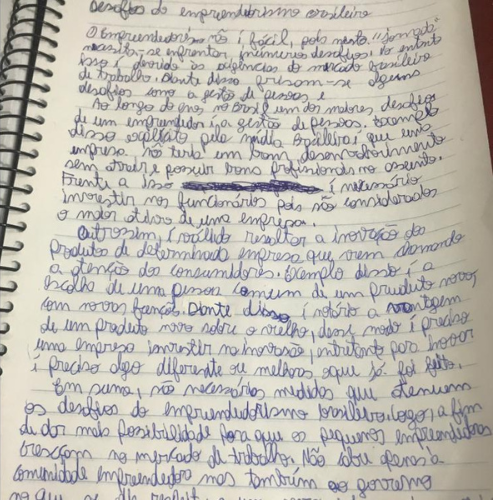 Desafios do empreendedorismo brasileiro
O Empreendedorismo não é fácil, pois nesta "jornada"
necessita-se enfrentar inúmeros desafios. No entanto
isso é devido as exigências do mercado brasileiro
de trabalho. Diante disso frisam-se alguns
desafios como a gestão de pessoas e
Ao longo do ano, no Brasil um dos maiores desafios
de um emprendedor é a gestão de pessoas. Exemplo
disso explícito pela mídia brasileira, que uma
empresa não teria um bom desenvolvimento
sem atrair e possuir bons profissionais no assento.
Frente a isso é necessário
investir nos funcionários pois são considerados
o maior ativos de uma empresa.
Outrossim, é válido ressaltar a inovação dos
produtos de determinada empresa que vem chamando
a atenção dos consumidores. Exemplo disso é a
escolha de uma pessoa comum de um produto novo,
com novas funções. Diante disso é notório a vantagem
de um produto novo sobre o velho, desse modo é preciso
uma empresa investir na inovação, entretanto para inovar
é preciso algo diferente ou melhor oque já foi feito.
Em suma, são necessárias medidas que atenuem
os desafios do empreendedorismo brasileiro. Logo, a fim
de dar mais possibilidade para que os pequenos empreendedores
cresçam no mercado de trabalho. Não cabe apenas à
comunidade empreendedora mas também ao governo
no que se diz respeito